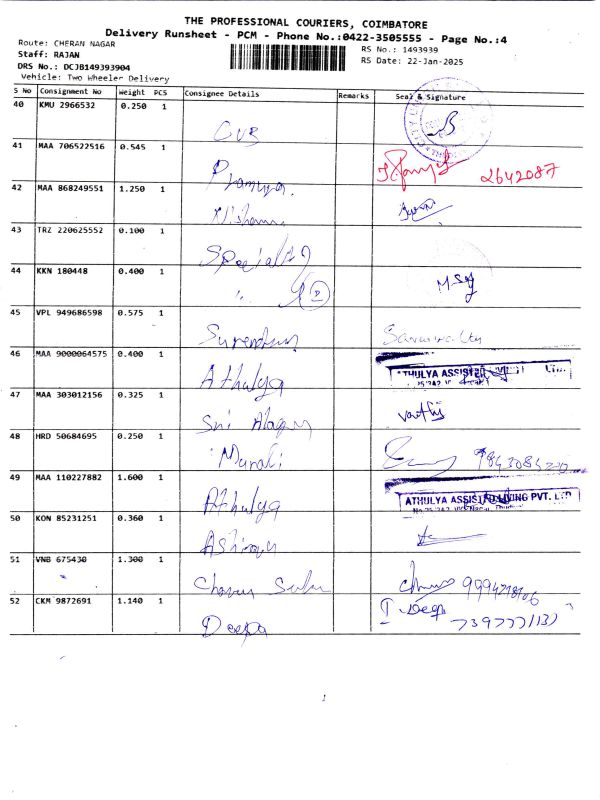 THE PROFESSIONAL COURIERS, COIMBATORE
Delivery Runsheet - PCM - Phone No.:0422-3505555 - Page No.:4
Route: CHERAN NAGAR
Staff: RAJAN
DRS No.: DCJB149393904
Vehicle: Two Wheeler Delivery
RS No.: 1493939
RS Date: 22-Jan-2025
S No Consignment No Weight PCS Consignee Details Remarks Seal & Signature
40 KMU 2966532 0.250 1 CUB
41 MAA 706522516 0.545 1 Pramiya. 2642087
42 MAA 868249551 1.250 1
43 TRZ 220625552 0.100 1 Speciality
44 KKN 180448 0.400 1
45 VPL 949686598 0.575 1
46 MAA 9000064575 0.400 1 Athulya
47 MAA 303012156 0.325 1 Sri
48 HRD 50684695 0.250 1 Murali
49 MAA 110227882 1.600 1 Athulya ATHULYA ASSISTED LIVING PVT. LTD
50 KON 85231251 0.360 1
51 VNB 675430 1.300 1
52 CKM 9872691 1.140 1 Deepa
1